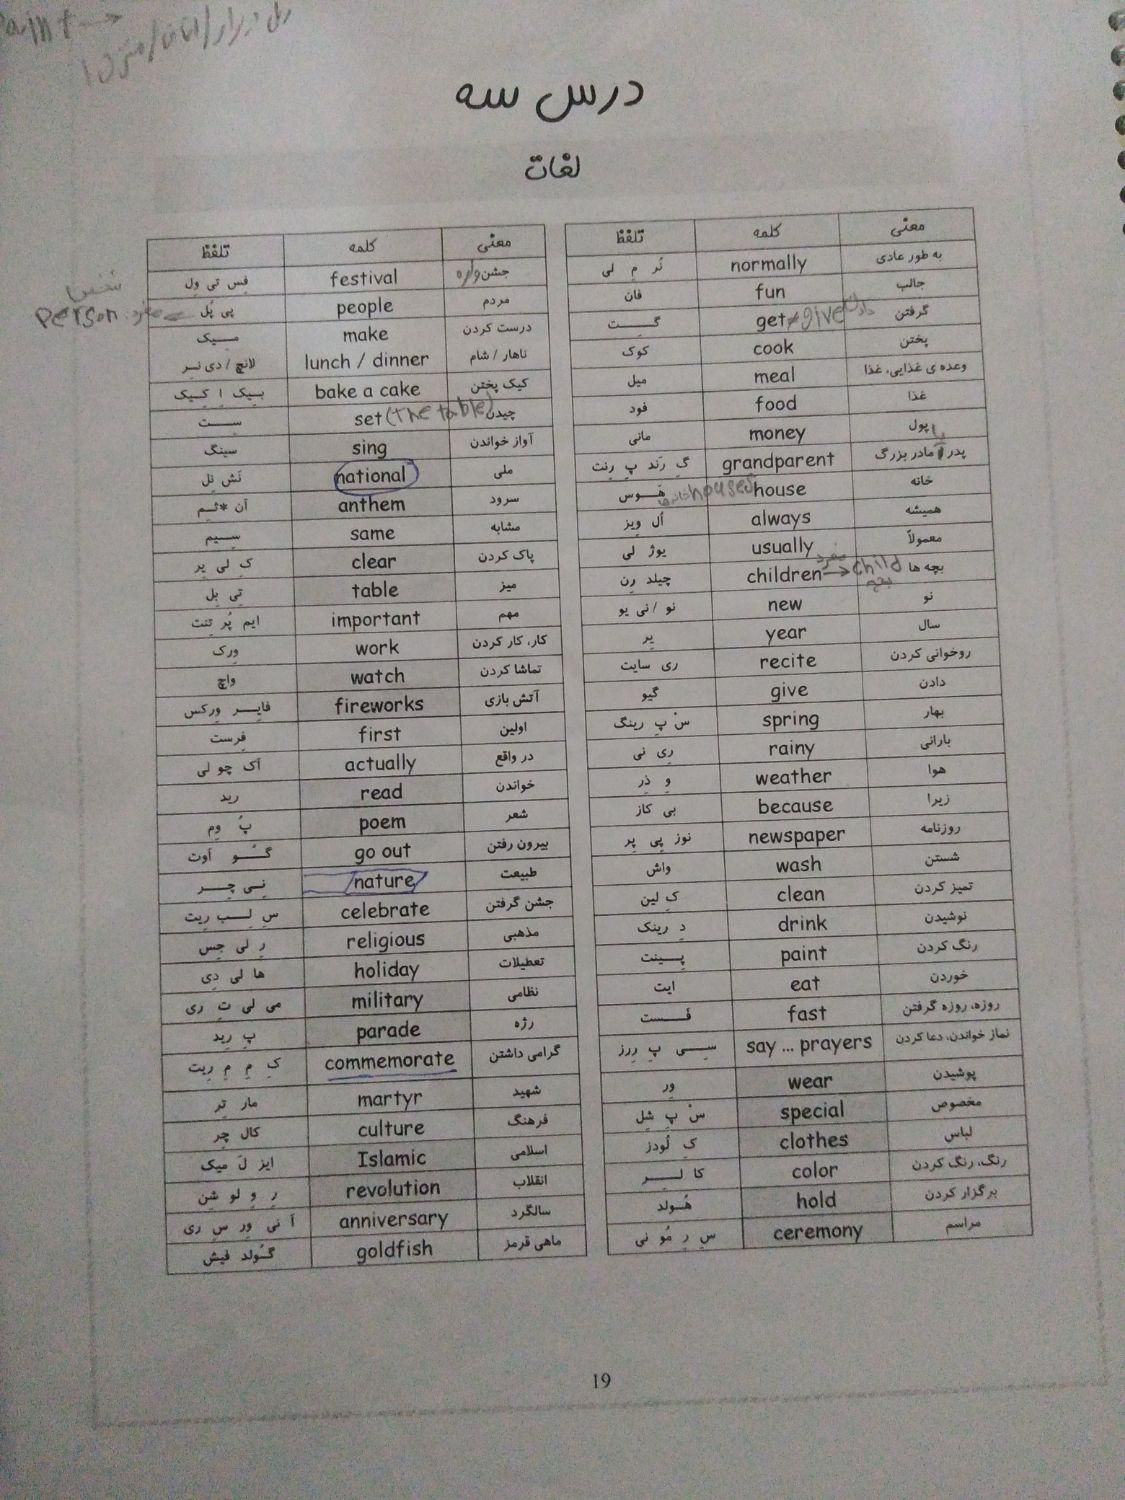 Paint →
درس سه
لغات
معنی کلمه تلفظ
به طور عادی normally نُر مِ لی
جالب fun فان
گرفتن get ≠ give دادن گـــت
پختن cook کوک
وعده ی غذایی، غذا meal میل
غذا food فود
پول money مانی
پدر یا مادر بزرگ grandparent گِ رَند پِ رِنت
خانه house houses خانه ها هَـــوس
همیشه always اُل ویز
معمولاً usually یوژ لی
بچه ها children → child مفرد بچه چیلد رِن
نو new نو / نی یو
سال year یِر
روخوانی کردن recite ری سایت
دادن give گیو
بهار spring سْ پِ رینگ
بارانی rainy رِی نی
هوا weather وِ ذِر
زیرا because بی کاز
روزنامه newspaper نوز پِی پِر
شستن wash واش
تمیز کردن clean کِ لین
نوشیدن drink دِ رینک
رنگ کردن paint پِـــینت
خوردن eat ایت
روزه، روزه گرفتن fast فَـــست
نماز خواندن، دعا کردن say ... prayers سِـــی پِ رِرز
پوشیدن wear وِر
مخصوص special سْ پِ شِل
لباس clothes کِ لُودز
رنگ، رنگ کردن color کا لِـــر
برگزار کردن hold هُـــولد
مراسم ceremony سِ رِ مُو نی
معنی کلمه تلفظ
جشنواره festival فِس تی وِل
مردم people پی پُل
person شخص
درست کردن make مِـــیک
ناهار / شام lunch / dinner لانچ / دی نِـر
کیک پختن bake a cake بِـیک اِ کِـیک
چیدن set (the table) سِـــت
آواز خواندن sing سینگ
ملی national نَش نِل
سرود anthem اَن *ثِـم
مشابه same سِـــیم
پاک کردن clear کِ لی یِر
میز table تِی بِل
مهم important ایم پُر تِنت
کار، کار کردن work وِرک
تماشا کردن watch واچ
آتش بازی fireworks فایِـــر وِرکس
اولین first فِرست
در واقع actually اَک چو لی
خواندن read رید
شعر poem پُ وِم
بیرون رفتن go out گُـــو اَوت
طبیعت nature نِـی چِـــر
جشن گرفتن celebrate سِ لِـــب رِیت
مذهبی religious رِ لی جِس
تعطیلات holiday ها لی دِی
نظامی military می لی تِ ری
رژه parade پِ رِید
گرامی داشتن commemorate کِ مِ مِ رِیت
شهید martyr مار تِر
فرهنگ culture کال چِر
اسلامی Islamic ایز لَ میک
انقلاب revolution رِ وِ لو شِن
سالگرد anniversary اَ نی وِر سِ ری
ماهی قرمز goldfish گُـولد فیش
19